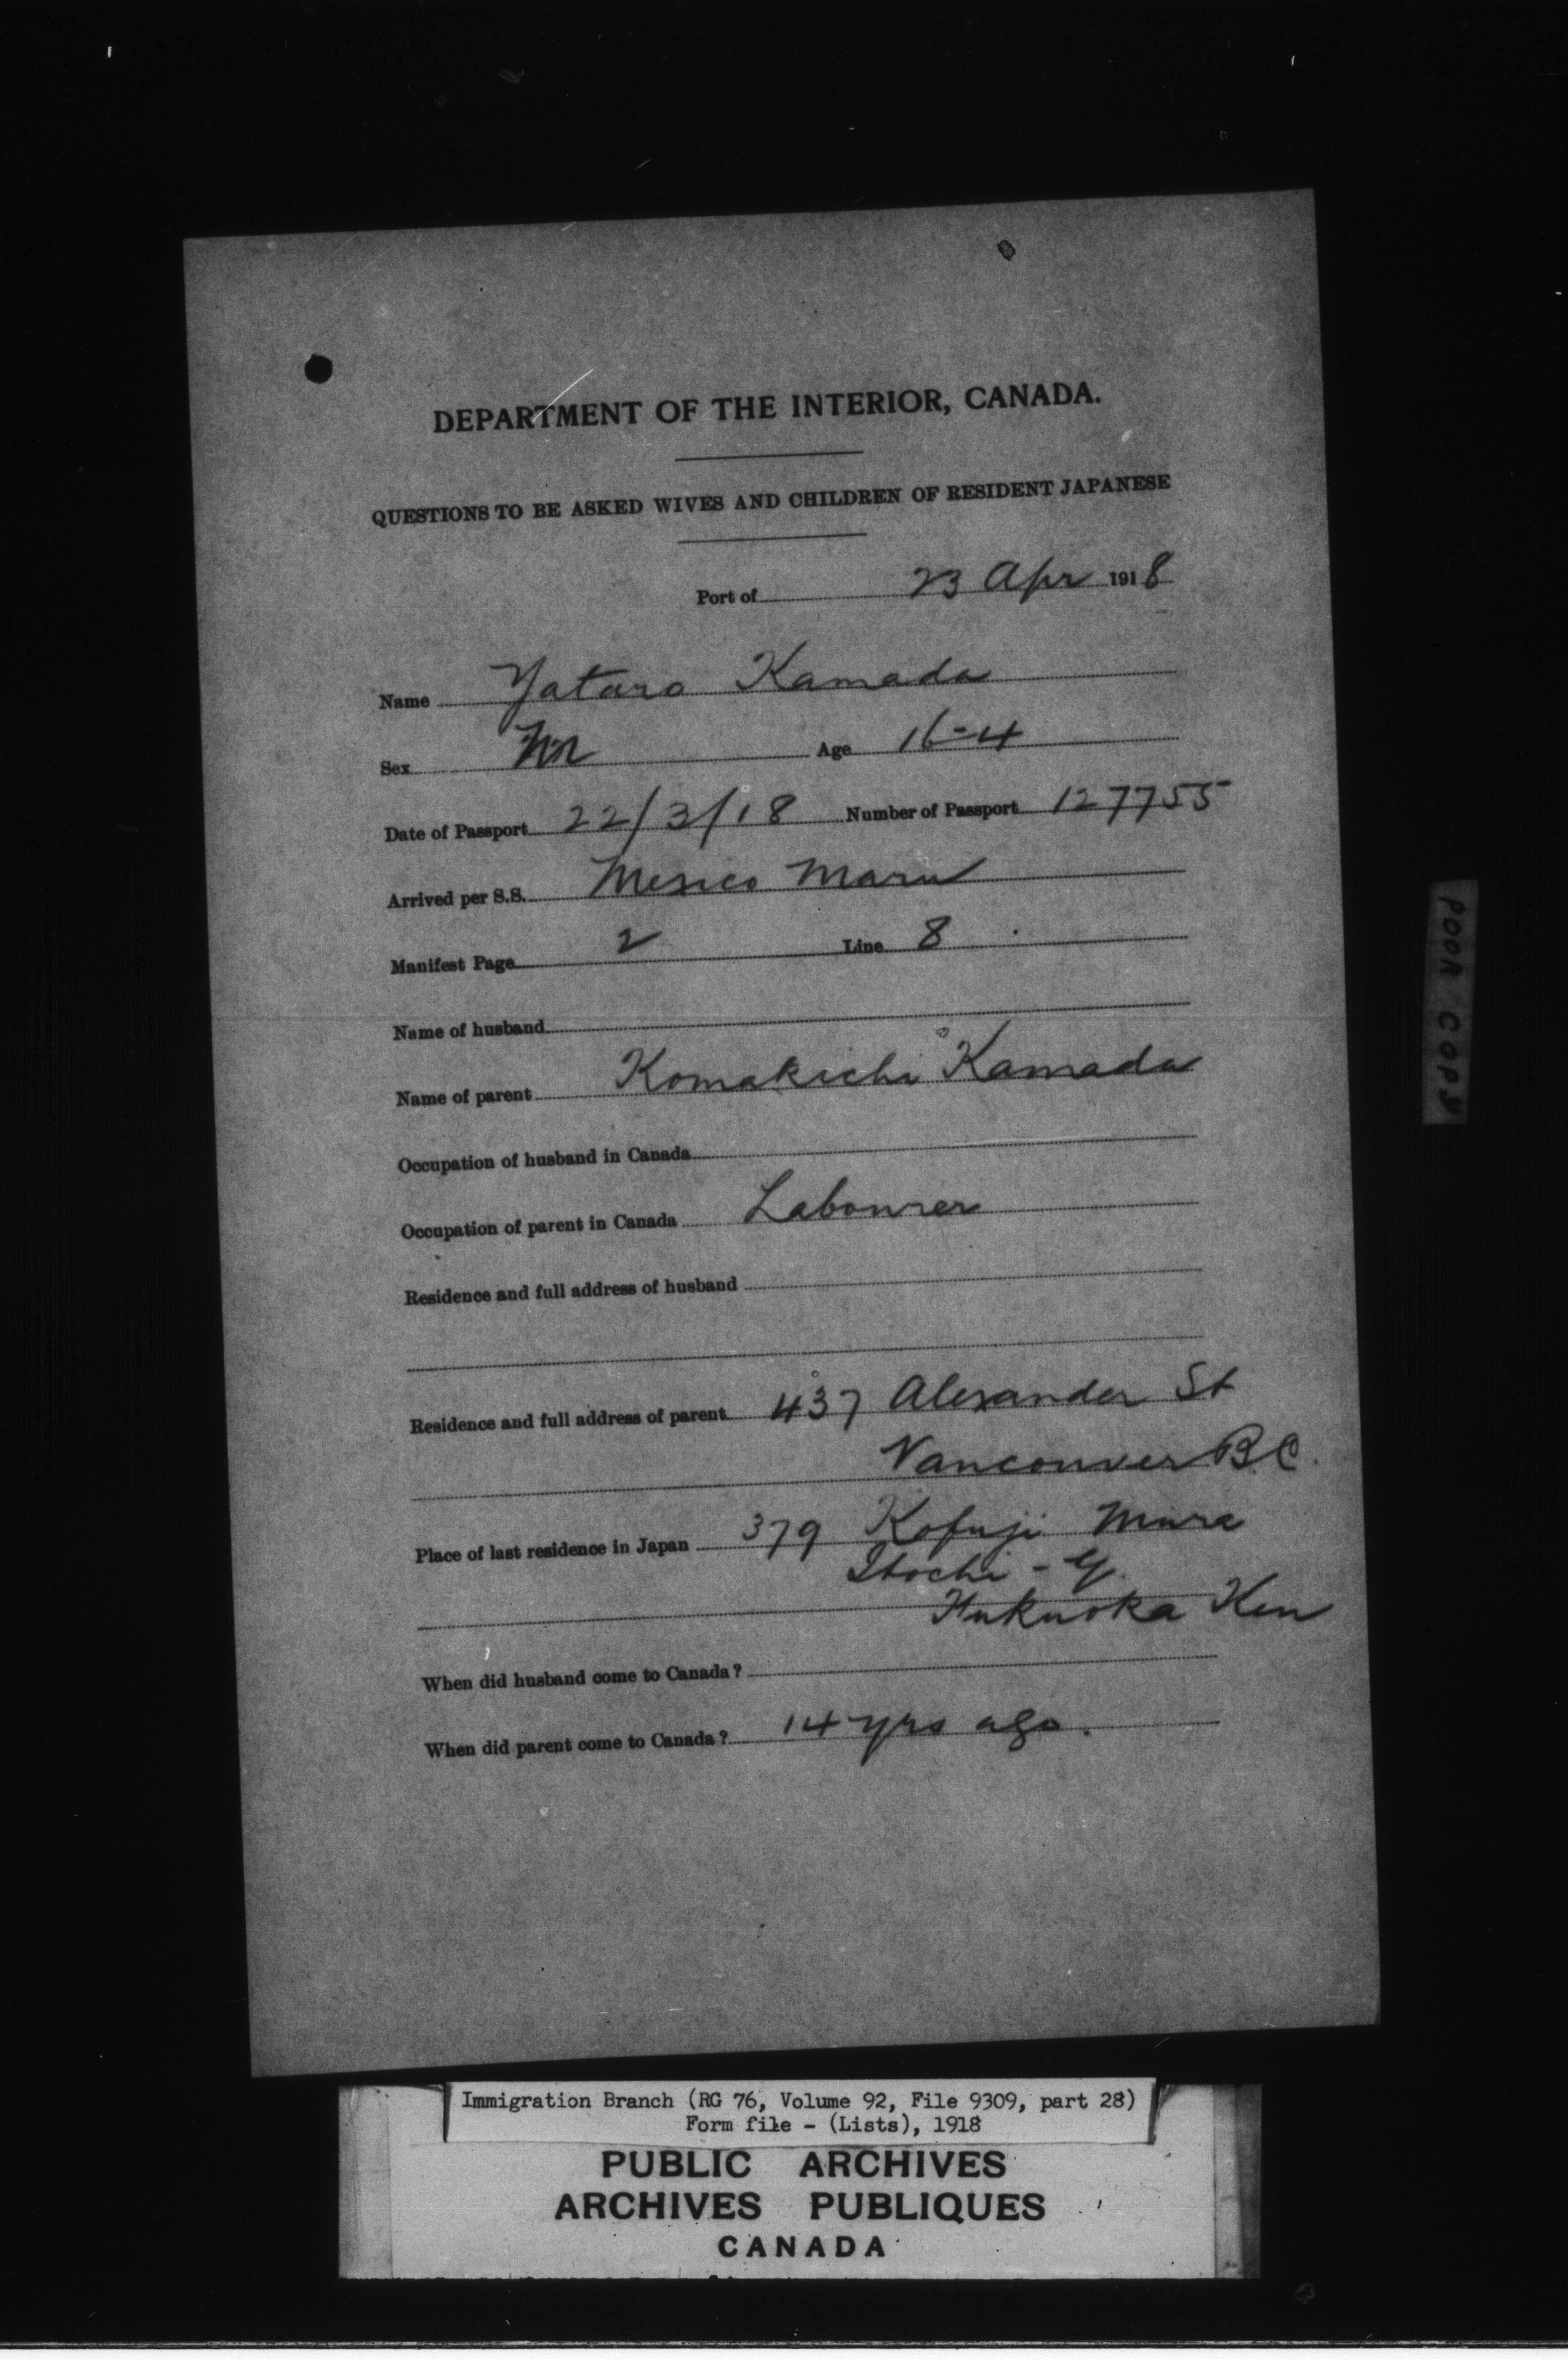 DEPARTMENT OF THE INTERIOR, CANADA.
QUESTIONS TO BE ASKED WIVES AND CHILDREN OF RESIDENT JAPANESE
Port of 23 Apr 1918
Name Yataro Kamada
Sex M Age 16-4
Date of Passport 22/3/18 Number of Passport 127755
Arrived per S.S. Mexico Maru
Manifest Page 2 Line 8
Name of husband
Name of parent Komakichi Kamada
Occupation of husband in Canada
Occupation of parent in Canada Labourer
Residence and full address of husband
Residence and full address of parent 437 Alexander St
Vancouver B.C.
Place of last residence in Japan 379 Kofuji Mura
Itochi - G.
Fukuoka Ken
When did husband come to Canada?
When did parent come to Canada? 14 yrs ago.
POOR COPY
Immigration Branch (RG 76, Volume 92, File 9309, part 28)
Form file - (Lists), 1918
PUBLIC ARCHIVES
ARCHIVES PUBLIQUES
CANADA